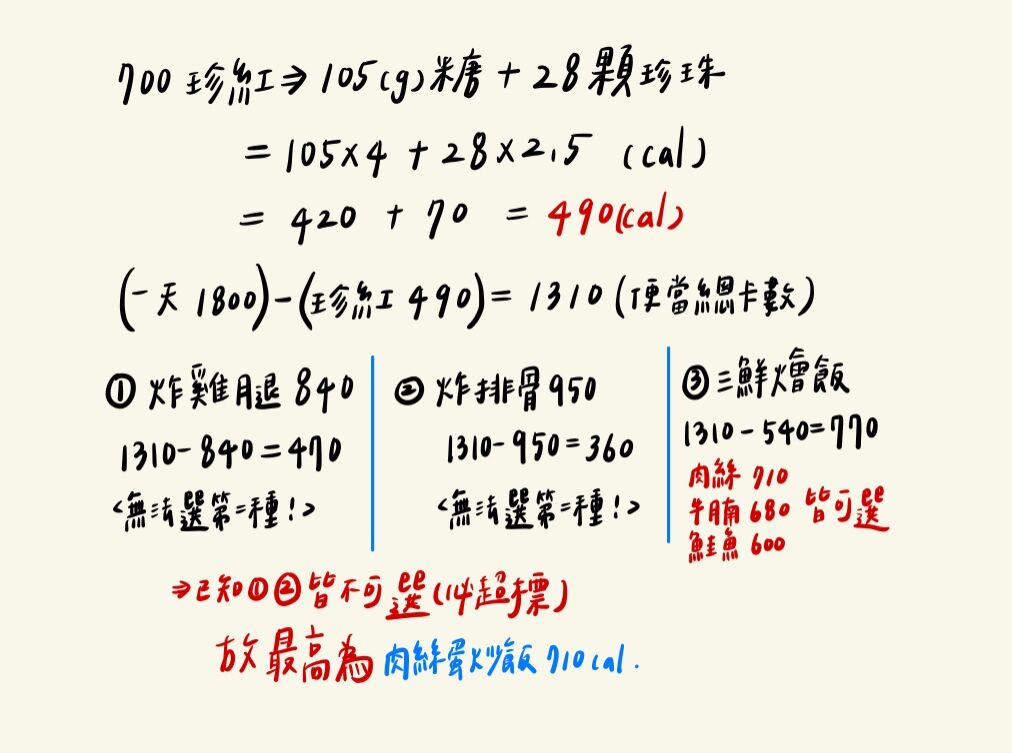 700珍紅⇒105(g)糖+28顆珍珠
=105×4+28×2.5 (cal)
=420+70=490(cal)
(一天1800)-(珍紅490)=1310(便當總卡數)
① 炸雞腿840
1310-840=470
<無法選第二種!>
② 炸排骨950
1310-950=360
<無法選第二種!>
③三鮮燴飯
1310-540=770
肉絲 710
牛腩 680 皆可選
鮭魚 600
⇒已知①②皆不可選(必超標)
故最高為肉絲蛋炒飯710cal.